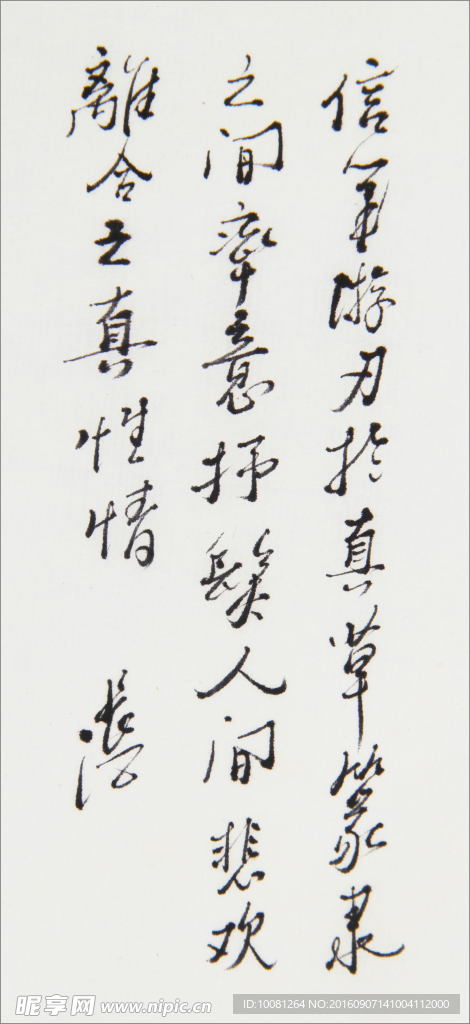 信笔游刃於真草篆隶
之间率意抒髮人间悲欢
離合之真性情
昵享网 www.nipic.cn
ID:10081264 NO:20160907141004112000